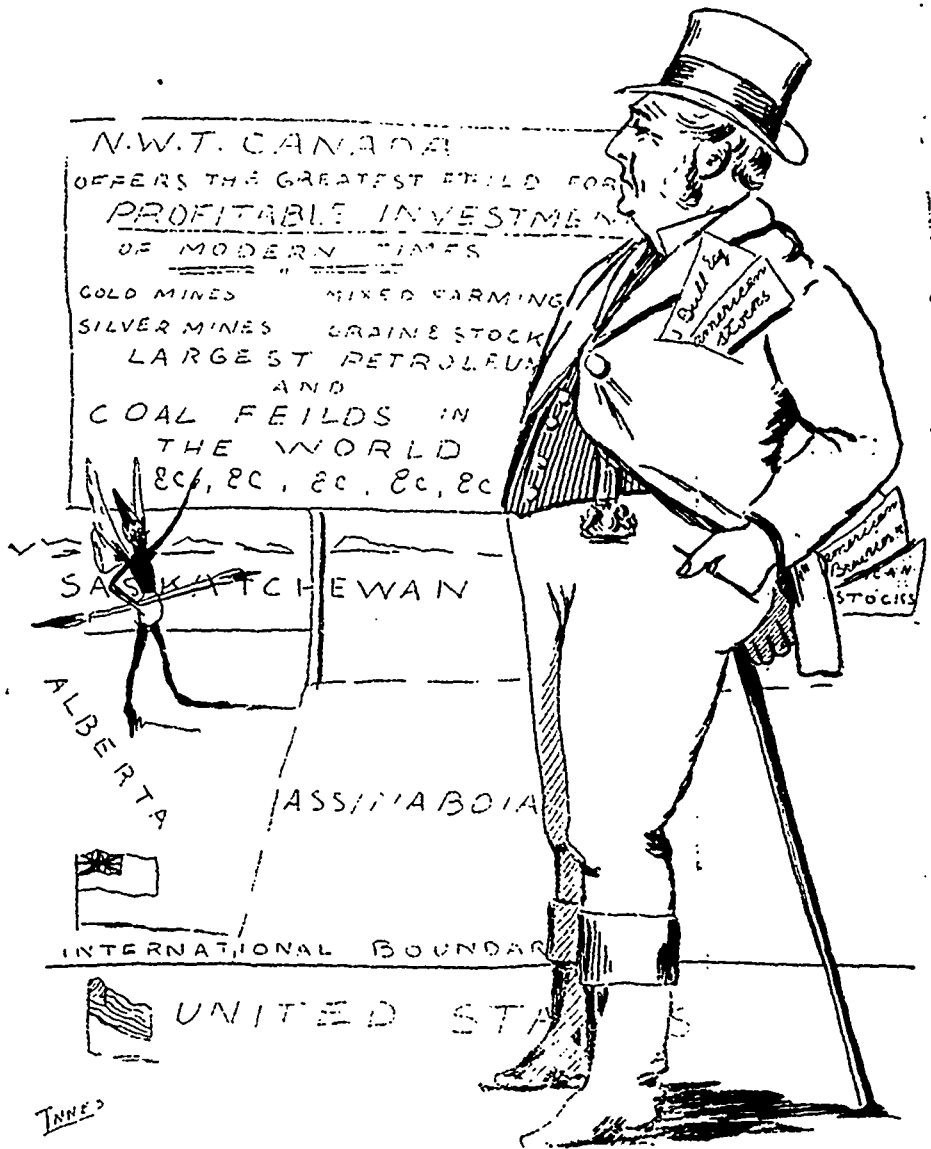 N.W.T. CANADA
OFFERS THE GREATEST FEILD FOR
PROFITABLE INVESTMEN
OF MODERN TIMES
GOLD MINES MIXED FARMING
SILVER MINES GRAIN & STOCK
LARGEST PETROLEUM
AND
COAL FEILDS IN
THE WORLD
&c, &c, &c, &c, &c
J Bull Esq
American
Stocks
American
STOCKS
SASKATCHEWAN
ALBERTA
ASSINABOIA
INTERNATIONAL BOUNDAR
UNITED STA S
INNES